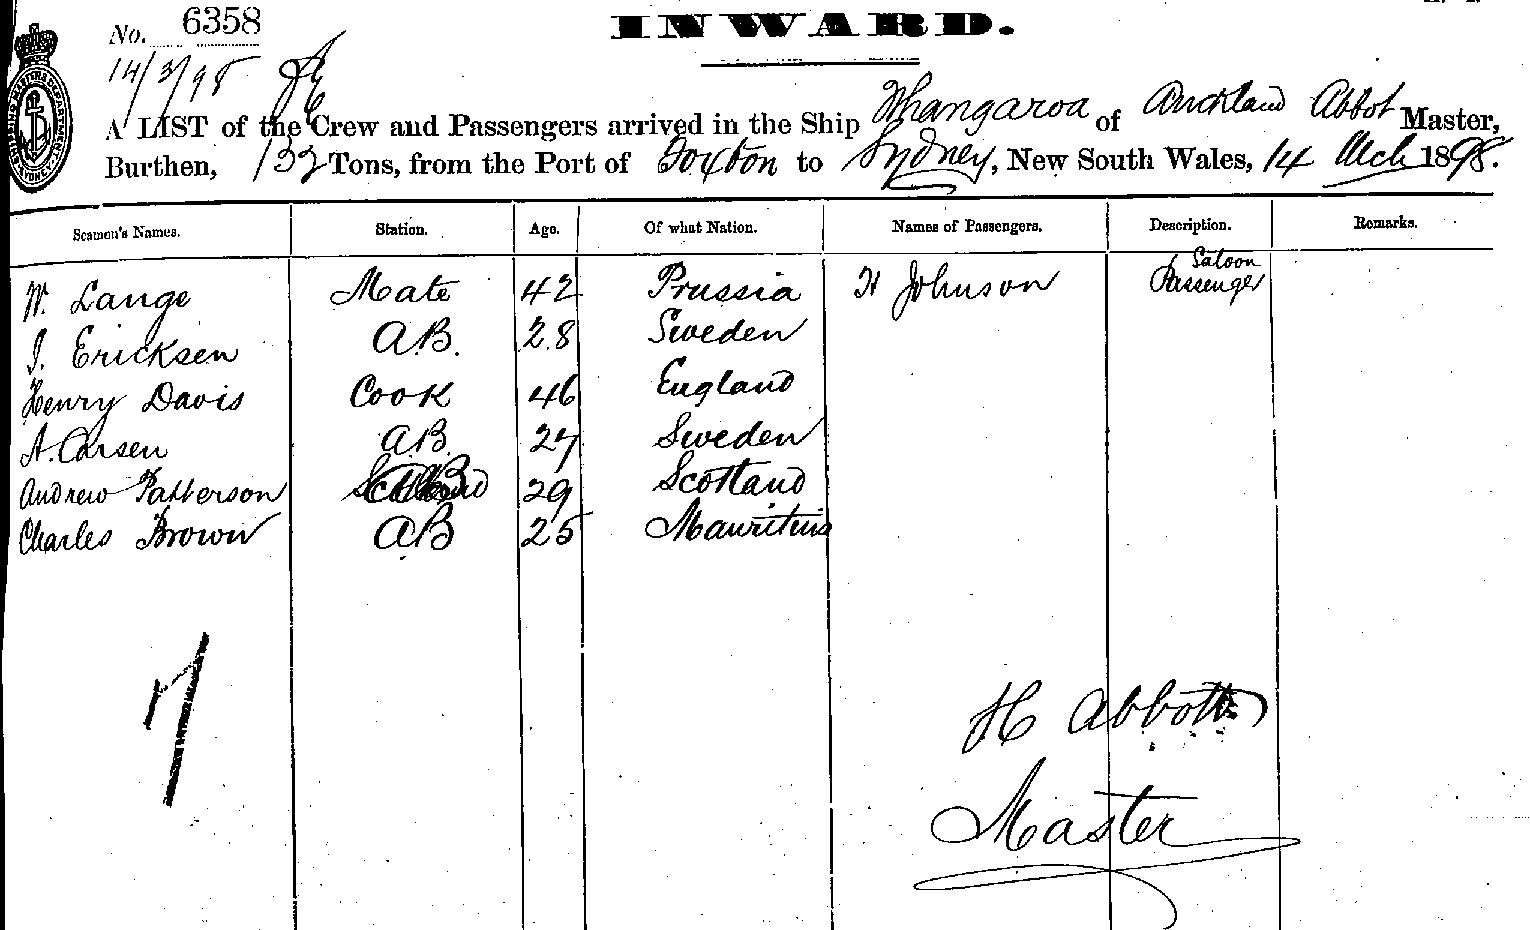 No. 6358
INWARD.
14/3/98
A LIST of the Crew and Passengers arrived in the Ship Whangaroa of Auckland Abbot Master,
Burthen, 132 Tons, from the Port of Foxton to Sydney, New South Wales, 14 Mch 1898.
Seamen's Names. Station. Age. Of what Nation. Names of Passengers. Description. Remarks.
W. Lange Mate 42 Prussia H Johnson Saloon Passenger
J. Ericksen A.B. 28 Sweden
Henry Davis Cook 46 England
A. Carsen A.B. 27 Sweden
Andrew Patterson AB 29 Scotland
Charles Brown A.B 25 Mauritius
7
H Abbott
Master